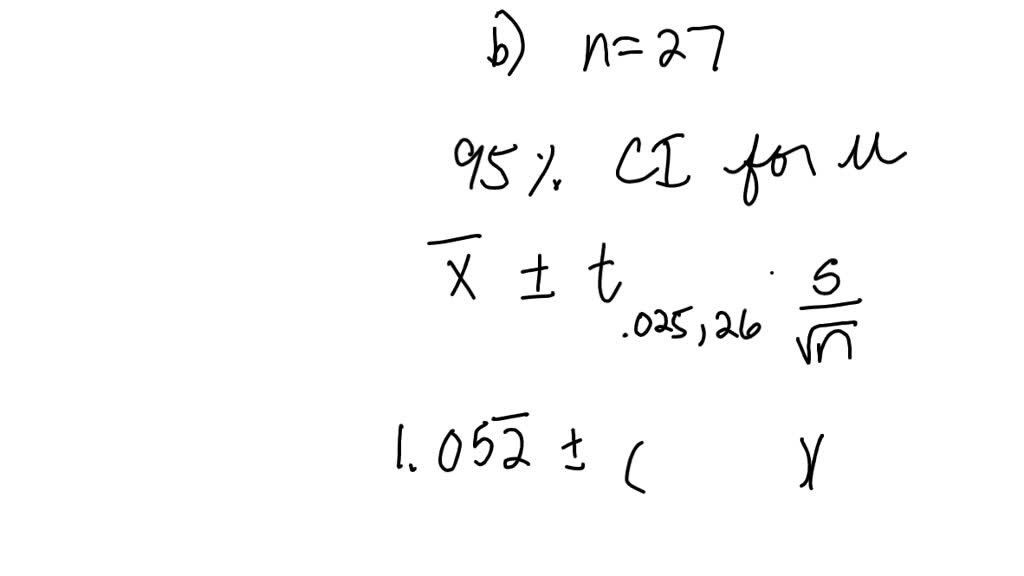 b) n=27
95% CI for μ
x̅ ± t.025,26 · s/√n
1.052̅ ± ( )(